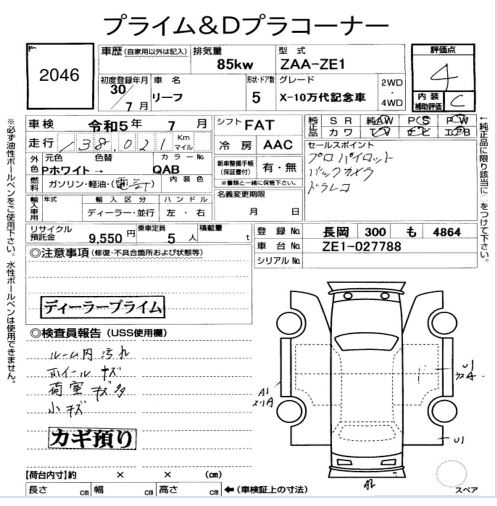 プライム&Dプラコーナー
2046
車歴 (自家用以外は記入) 排気量 型式
85kw ZAA-ZE1
評価点
4
初度登録年月 車名 形状・ドア数 グレード
30/7月 リーフ 5 X-10万代記念車 2WD・4WD
内装補助評価 C
車検 令和5年 7月
シフト FAT
純正品 SR 純AW PS PW
カワ TV ナビ エアB
走行 138,021 Km マイル
冷房 AAC
セールスポイント
プロパイロット
バックカメラ
ドラレコ
外色 元色 色替 カラーNo.
Pホワイト→ QAB
新車整備手帳(保証書付) 有・無
※書類と一緒に保管下さい。
燃料 ガソリン・軽油・(電気) 内装色
名義変更期限
月 日
輸入車用 年式 輸入区分 ハンドル
ディーラー・並行 左・右
リサイクル預託金 9,550円 乗車定員 5人 積載量 t
登録No. 長岡 300 も 4864
車台No. ZE1-027788
シリアルNo.
◎注意事項(修復・不具合箇所および状態等)
ディーラープライム
◎検査員報告(USS使用欄)
ルーム内汚れ
ホイールキズ
荷室キズ多
小キズ
カギ預り
A1
U1
U1
【荷台内寸】 × × (cm)
長さ cm 幅 cm 高さ cm ←(車検証上の寸法)
スペア
※必ず油性ボールペンをご使用下さい。水性ボールペンは使用できません。
※純正品に限り該当に○をつけて下さい。